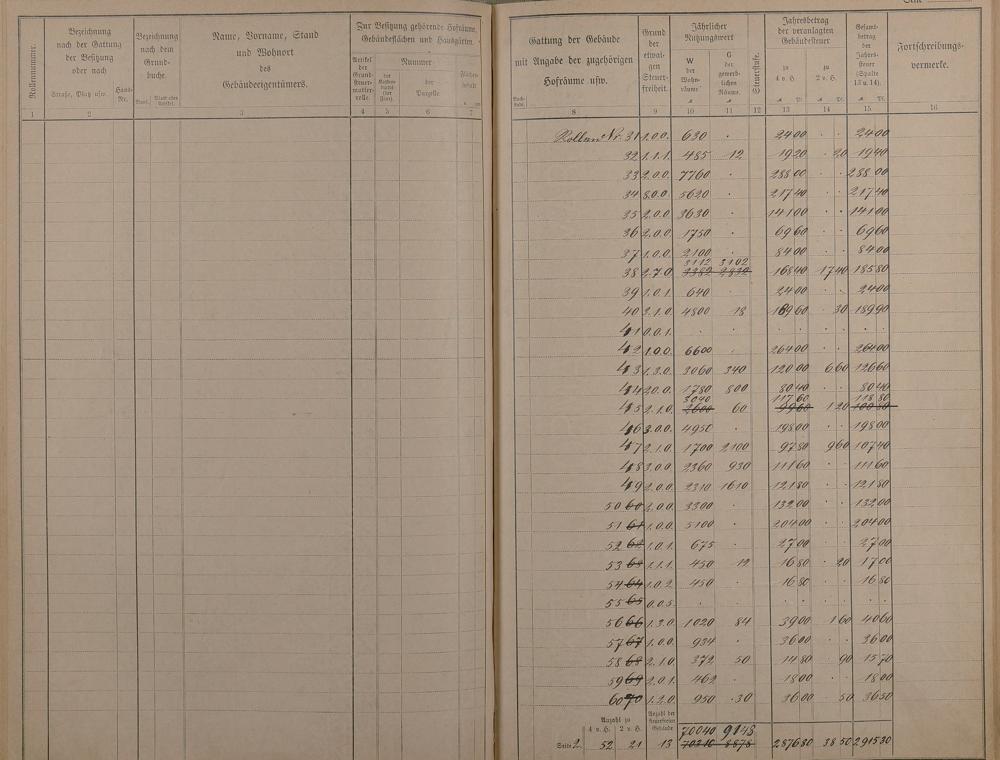 Seite
Rollennummer.
Bezeichnung nach der Gattung der Besitzung oder nach
Straße, Platz usw.
Haus-Nr.
Bezeichnung nach dem Grundbuche.
Band.
Name, Vorname, Stand und Wohnort des Gebäudeeigentümers.
Zur Besitzung gehörende Hofräume, Gebäudeflächen und Hausgärten.
Artikel der Grund-steuer-mutter-rolle.
Nummer
der Parzelle.
Flächen-inhalt
1 2 3 4 5 6 7
Gattung der Gebäude mit Angabe der zugehörigen Hofräume usw.
Grund der etwai-gen Steuer-freiheit.
Jährlicher Nutzungswert
W der Wohn-räume
G der gewerb-lichen Räume.
Steuerstufe.
Jahresbetrag der veranlagten Gebäudesteuer
zu 4 v. H.
zu 2 v. H.
Gesamt-betrag der Jahres-steuer (Spalte 13 u. 14).
Fortschreibungs-vermerke.
8 9 10 11 12 13 14 15 16
Rollen Nr. 31 1.0.0. 630 . 24 00 . . 24 00
32 1.1.1. 485 12 19 20 . 20 19 40
33 2.0.0. 7760 . 288 00 . . 288 00
34 8.0.0. 5620 . 217 40 . . 217 40
35 2.0.0. 3630 . 141 00 . . 141 00
36 2.0.0. 1750 . 69 60 . . 69 60
37 1.0.0. 2100 . 84 00 . . 84 00
3112 3102
38 2.7.0 3382 2832 168 40 17 40 185 80
39 1.0.1. 640 . 24 00 . . 24 00
40 2.1.0. 4800 18 189 60 30 189 90
41 0.0.1. . . . . . .
42 1.0.0. 6600 . 264 00 . . 264 00
43 1.3.0. 3060 340 120 00 6 60 126 60
44 2.0.0. 1780 800 80 40 . . 80 40
3040 117 60 118 80
45 2.1.0. 2600 60 99 60 1 20 100 80
46 3.0.0. 4950 . 198 00 . . 198 00
47 2.1.0. 1700 2100 97 80 9 60 107 40
48 3.0.0 2360 930 111 60 . . 111 60
49 2.0.0. 2310 1610 121 80 . . 121 80
50 60 2.0.0. 3300 . 132 00 . . 132 00
51 61 1.0.0. 5100 . 204 00 . . 204 00
52 62 1.0.1. 675 . 27 00 . . 27 00
53 63 1.1.1. 450 12 16 80 . 20 17 00
54 64 1.0.2. 450 . 16 80 . . 16 80
55 65 0.0.5. . . . . . .
56 66 1.3.0. 1020 84 39 00 1 60 40 60
57 67 1.0.0. 934 . 36 00 . . 36 00
58 68 2.1.0 372 50 14 80 90 15 70
59 69 2.0.1. 462 . 18 00 . . 18 00
60 70 1.2.0. 950 30 36 00 50 36 50
Anzahl zu 4 v. H. 2 v. H.
Anzahl der steuerfreien Gebäude
70040 9148
Seite 2. 52 21 13 70310 8878 2876 80 38 50 2915 30